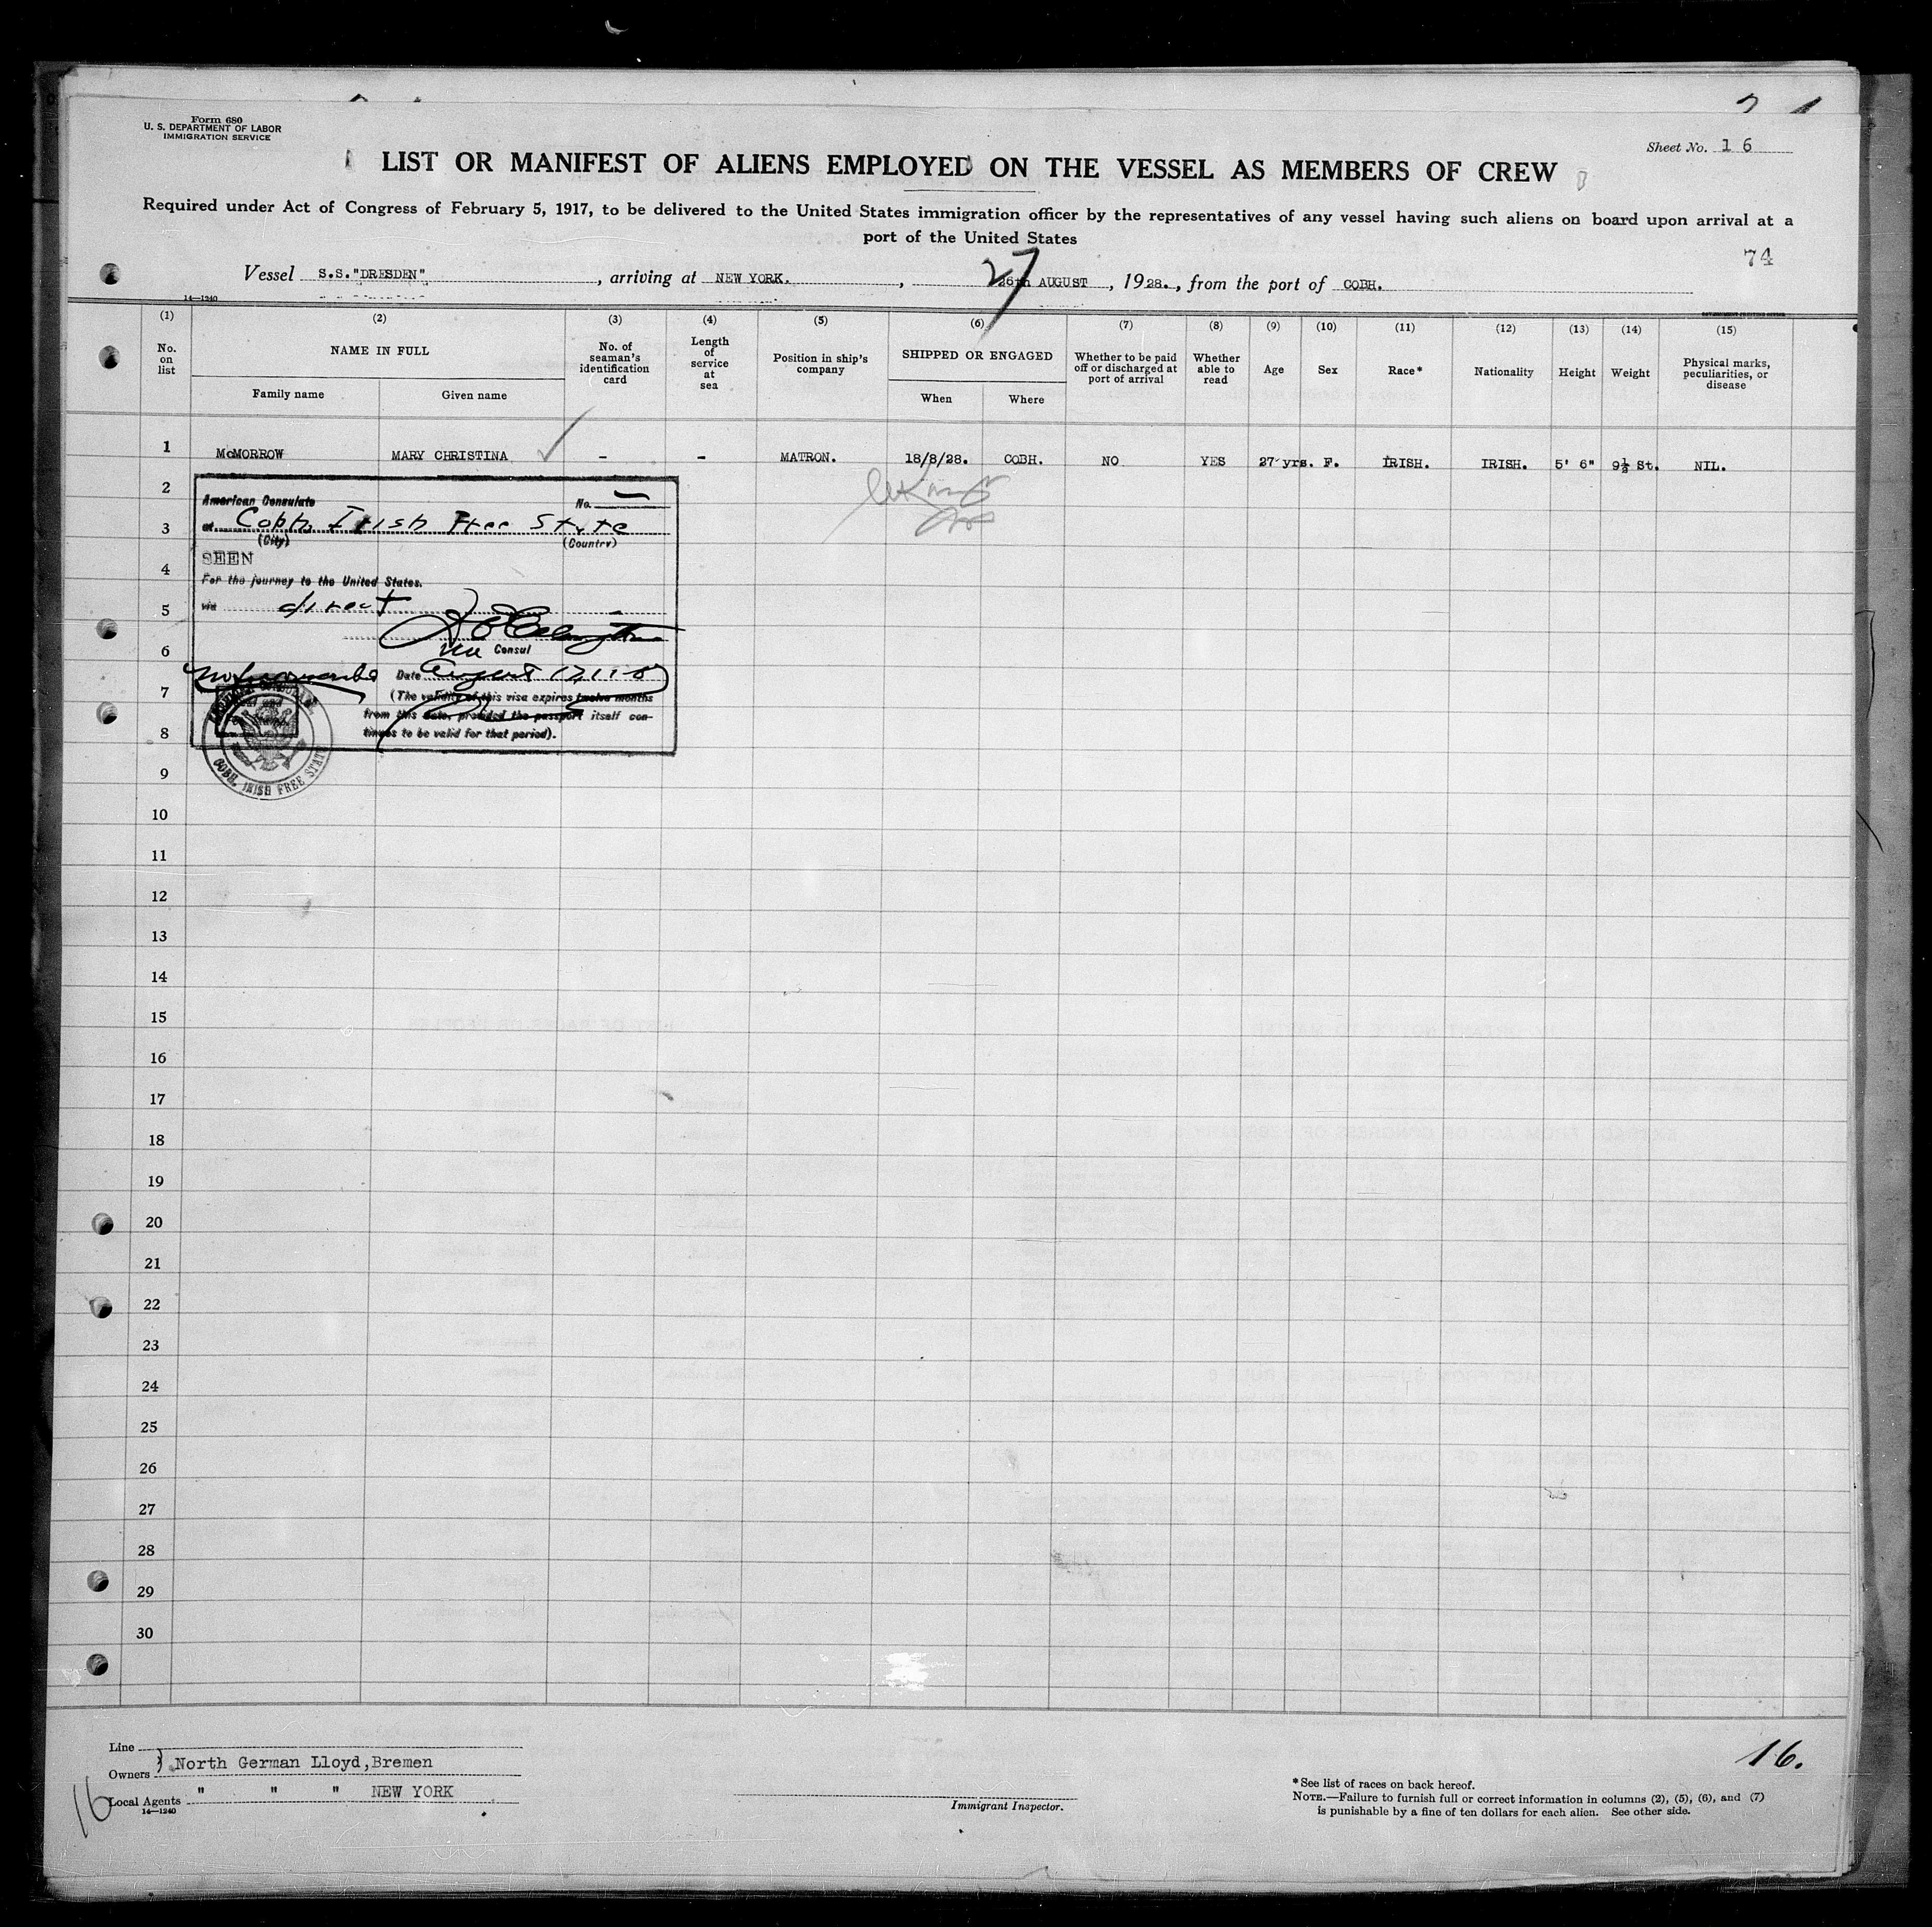 Form 680
U. S. DEPARTMENT OF LABOR
IMMIGRATION SERVICE
Sheet No. 16
LIST OR MANIFEST OF ALIENS EMPLOYED ON THE VESSEL AS MEMBERS OF CREW
Required under Act of Congress of February 5, 1917, to be delivered to the United States immigration officer by the representatives of any vessel having such aliens on board upon arrival at a
port of the United States
74
27
Vessel S.S."DRESDEN", arriving at NEW YORK., 26th AUGUST, 1928., from the port of COBH.
14—1240
(1) (2) (3) (4) (5) (6) (7) (8) (9) (10) (11) (12) (13) (14) (15)
No. on list
NAME IN FULL
Family name
Given name
No. of seaman's identification card
Length of service at sea
Position in ship's company
SHIPPED OR ENGAGED
When
Where
Whether to be paid off or discharged at port of arrival
Whether able to read
Age
Sex
Race*
Nationality
Height
Weight
Physical marks, peculiarities, or disease
1 McMORROW MARY CHRISTINA - - MATRON. 18/8/28. COBH. NO YES 27 yrs. F. IRISH. IRISH. 5' 6" 9½ St. NIL.
2
3
4
5
6
7
8
9
10
11
12
13
14
15
16
17
18
19
20
21
22
23
24
25
26
27
28
29
30
American Consulate No. —
at Cobh, Irish Free State
(City) (Country)
SEEN
For the journey to the United States.
via direct
Consul
Date August
(The validity of this visa expires twelve months
from this date, provided the passport itself con-
tinues to be valid for that period).
COBH, IRISH FREE STATE
Line
Owners } North German Lloyd,Bremen
Local Agents " " " NEW YORK
14—1240
16
Immigrant Inspector.
16.
*See list of races on back hereof.
NOTE.—Failure to furnish full or correct information in columns (2), (5), (6), and (7)
is punishable by a fine of ten dollars for each alien. See other side.